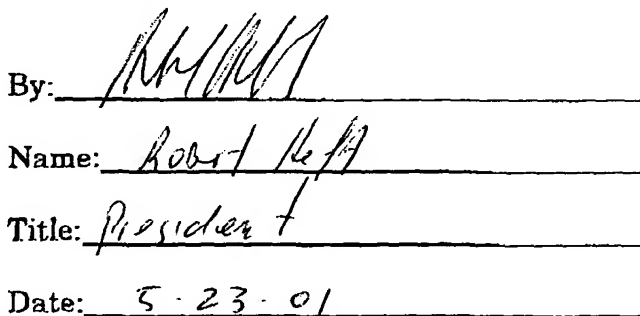 By:
Name: Robert Heft
Title: President
Date: 5-23-01